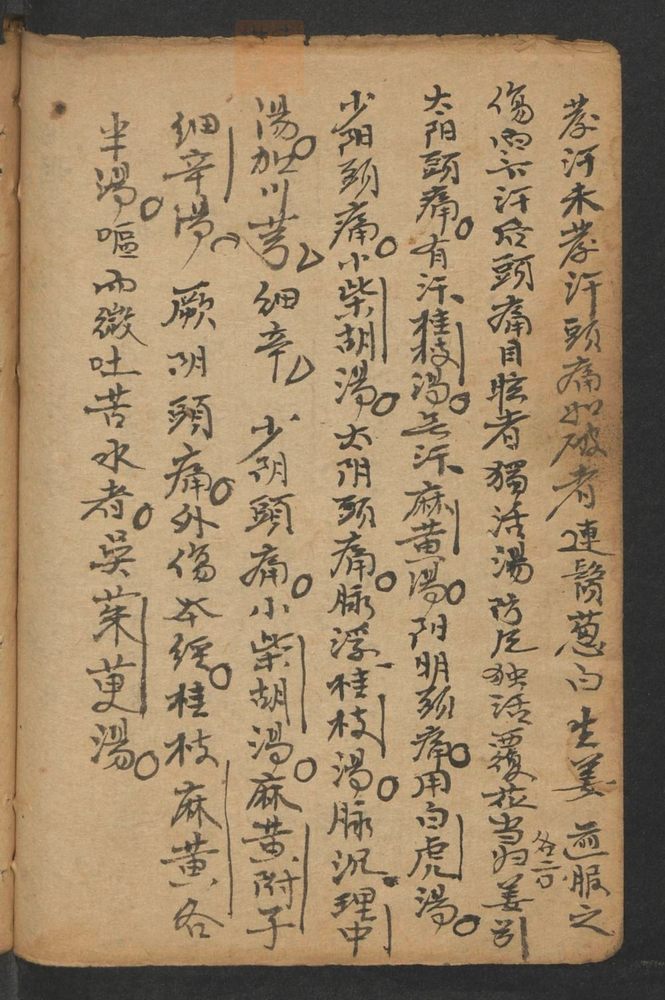 發汗未發汗頭痛如破者連鬚葱白生姜 並服之
傷寒汗後頭痛目眩者獨活湯防風独活覆花当归姜引
各三Q
太阳頭痛有汗桂枝湯无汗麻黄湯阳明頭痛用白虎湯
少阳頭痛小柴胡湯太阴頭痛脉浮桂枝湯脉沉理中
湯加川芎细辛 少阴頭痛小柴胡湯麻黄附子
细辛湯 厥阴頭痛外傷本經桂枝麻黄各
半湯嘔而微吐苦水者吳茱萸湯